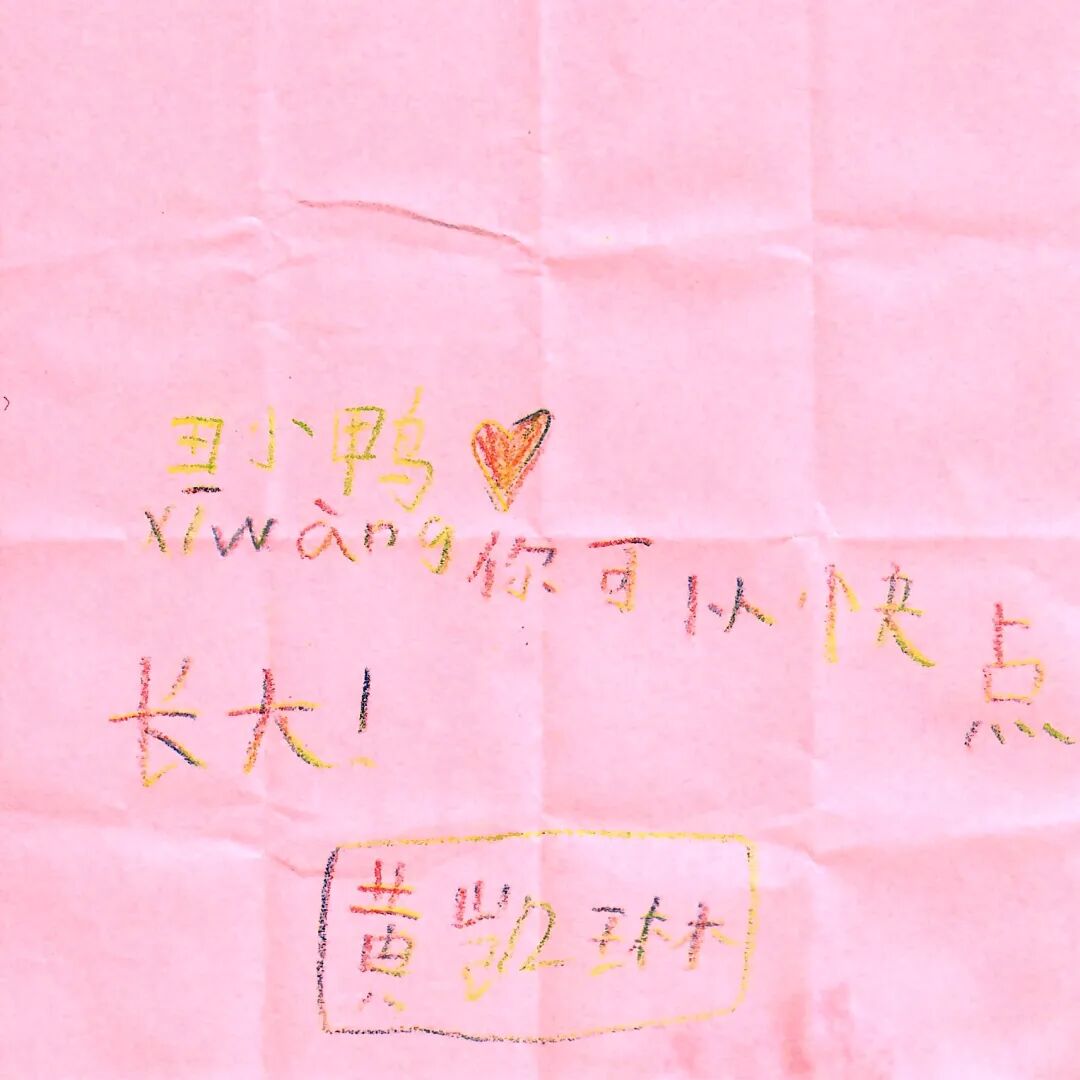 丑小鸭
xīwàng你可以快点
长大!
黄凯琳